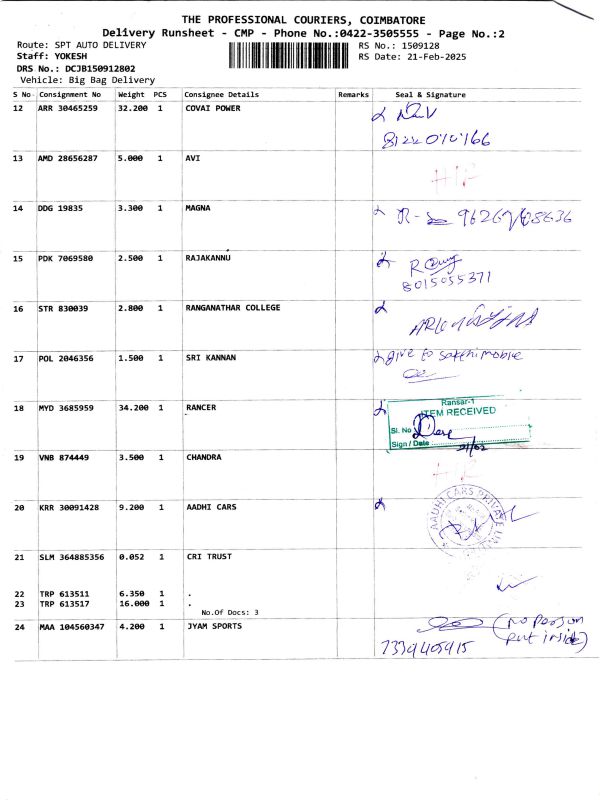 THE PROFESSIONAL COURIERS, COIMBATORE
Delivery Runsheet - CMP - Phone No.:0422-3505555 - Page No.:2
Route: SPT AUTO DELIVERY
RS No.: 1509128
Staff: YOKESH
RS Date: 21-Feb-2025
DRS No.: DCJB150912802
Vehicle: Big Bag Delivery
S No Consignment No Weight PCS Consignee Details Remarks Seal & Signature
12 ARR 30465259 32.200 1 COVAI POWER
13 AMD 28656287 5.000 1 AVI
14 DDG 19835 3.300 1 MAGNA
15 PDK 7069580 2.500 1 RAJAKANNU
8015055371
16 STR 830039 2.800 1 RANGANATHAR COLLEGE
17 POL 2046356 1.500 1 SRI KANNAN give to sakthi mobile
18 MYD 3685959 34.200 1 RANCER
Ransar-1
ITEM RECEIVED
Sl. No
Sign / Date 21/02
19 VNB 874449 3.500 1 CHANDRA
20 KRR 30091428 9.200 1 AADHI CARS
AADHI CARS PRIVATE
21 SLM 364885356 0.052 1 CRI TRUST
22 TRP 613511 6.350 1 .
23 TRP 613517 16.000 1 .
No.Of Docs: 3
24 MAA 104560347 4.200 1 JYAM SPORTS (no person
put inside)
7339405915